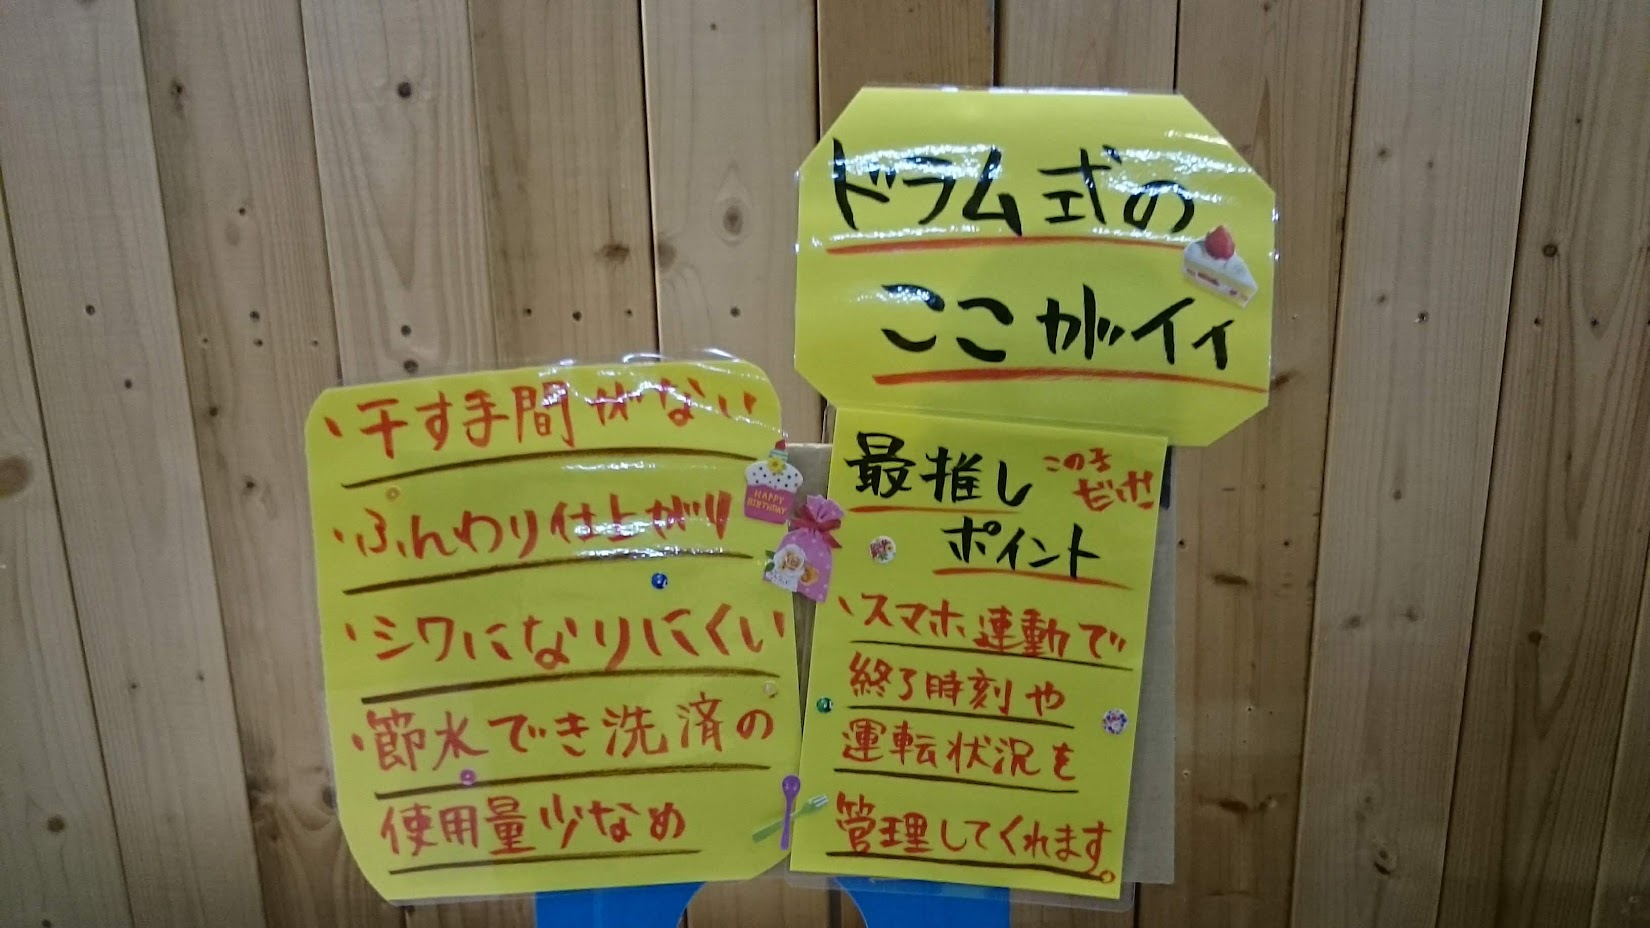 ドラム式の
ここがイイ
・干す手間がない
・ふんわり仕上がり
・シワになりにくい
・節水でき洗済の
使用量少なめ
HAPPY
BIRTHDAY
最推し
ポイント
・スマホ連動で
終了時刻や
運転状況を
管理してくれます。